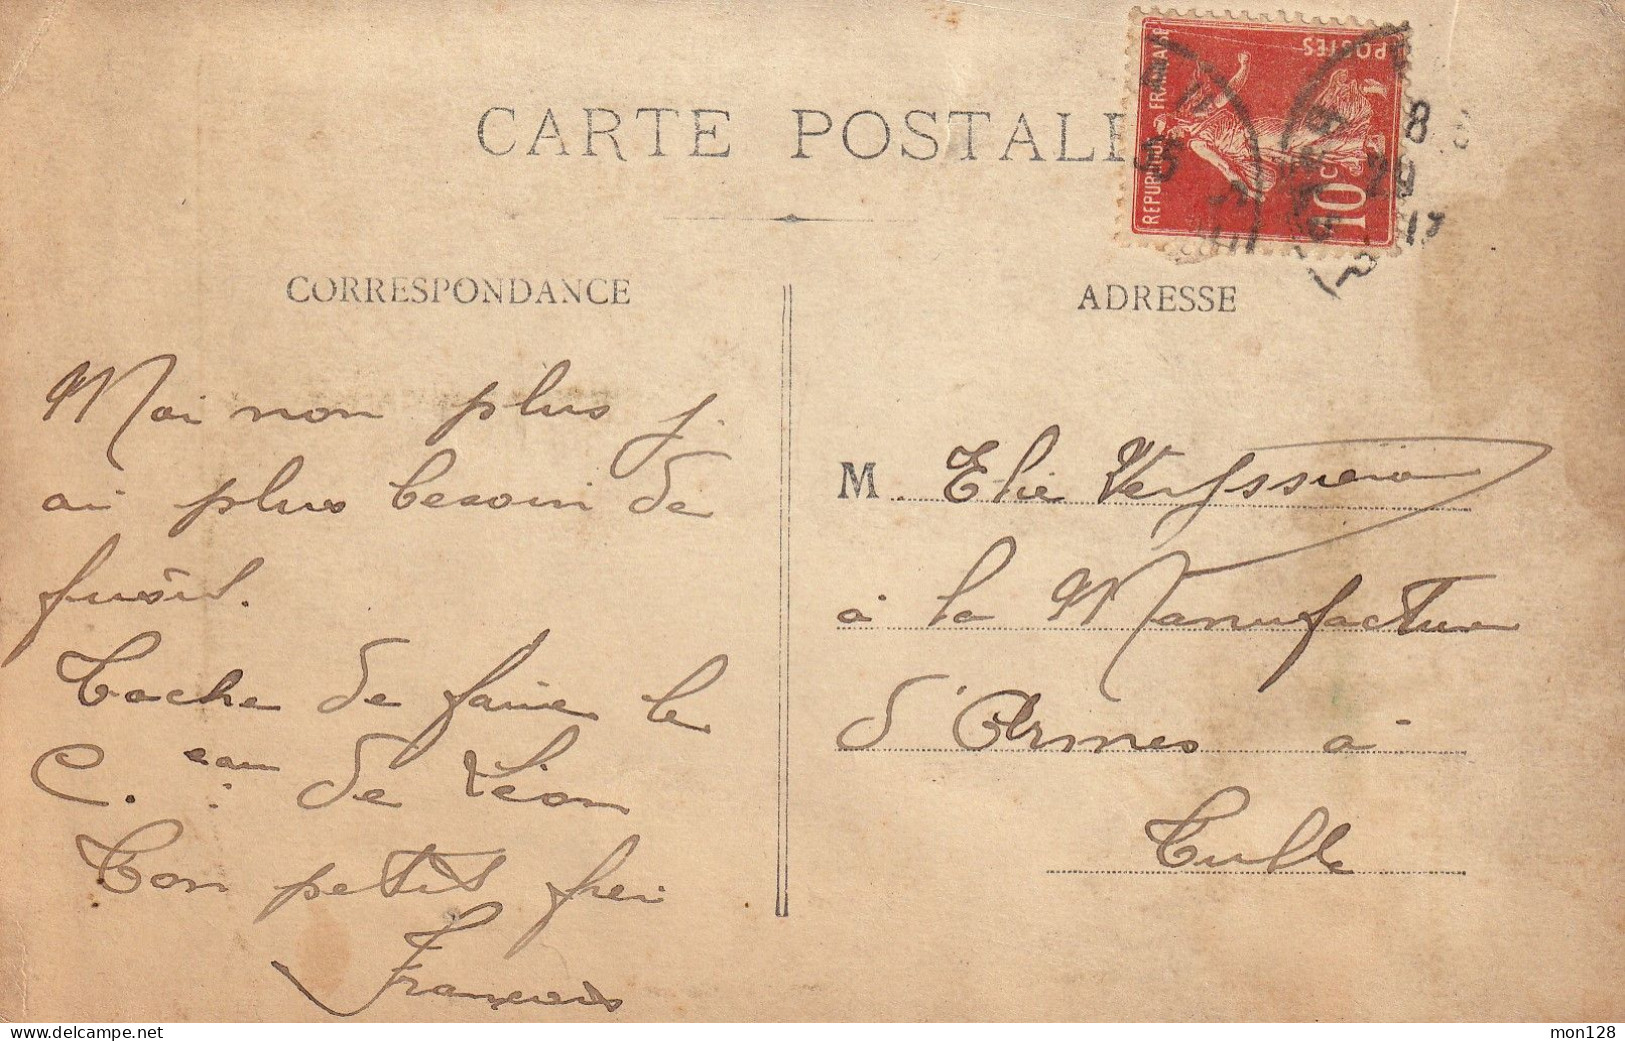 CARTE POSTALE
REPUBLIQUE FRANÇAISE
POSTES
10 C
8
29
13
CORRESPONDANCE
Moi non plus j.
ai plus besoin de
fusil.
Tache de faire le
C. eau de Léon
Ton petit frere
François
ADRESSE
M. Elie
à la Manufacture
d'Armes à
Tulle
mon128